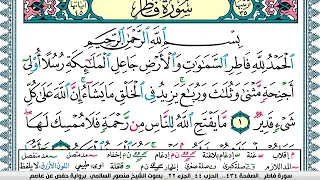 سورة فاطر
بِسْمِ اللَّهِ الرَّحْمَٰنِ الرَّحِيمِ
الْحَمْدُ لِلَّهِ فَاطِرِ السَّمَٰوَٰتِ وَالْأَرْضِ جَاعِلِ الْمَلَٰٓئِكَةِ رُسُلًا أُو۟لِىٓ
أَجْنِحَةٍ مَّثْنَىٰ وَثُلَٰثَ وَرُبَٰعَ يَزِيدُ فِى الْخَلْقِ مَا يَشَآءُ إِنَّ اللَّهَ عَلَىٰ كُلِّ
شَىْءٍ قَدِيرٌ ١ مَّا يَفْتَحِ اللَّهُ لِلنَّاسِ مِن رَّحْمَةٍ فَلَا مُمْسِكَ لَهَا
سورة فاطر الصفحة ٤٣٤ الحزب ٤٤ الجزء ٢٢ بصوت الشيخ منصور السالمي برواية حفص عن عاصم